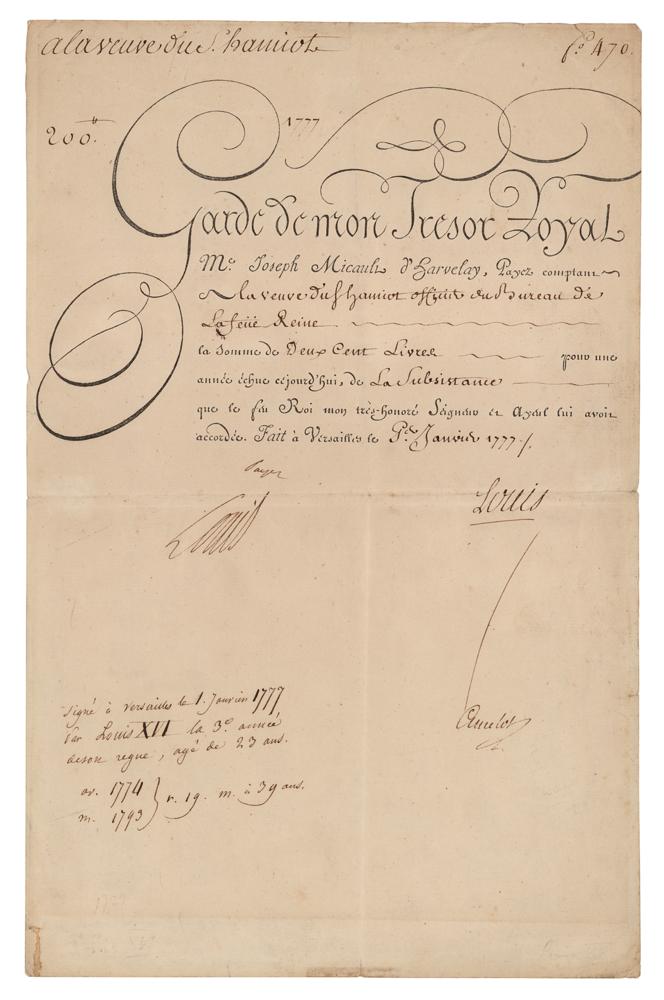 a la veuve du S. hamiot
f.o 470.
200.tt
1777
Garde de mon Tresor Royal
M.e Joseph Micault d'Harvelay, Payez comptant
a la veuve du S hamiot du Bureau de
La feüe Reine
la somme de Deux Cent Livres pour une
année échue cejourd'hui, de La Subsistance
que le feu Roi mon très-honoré Seigneur et Ayeul lui avoit
accordée. Fait à Versailles le P.er Janvier 1777.
Payez
Louis
Louis
Amelot
signé à versailles le 1. Janvier 1777
Par Louis XVI la 3.e année
de son regne, agé de 23 ans.
av. 1774 } r. 19. m. à 39 ans.
m. 1793